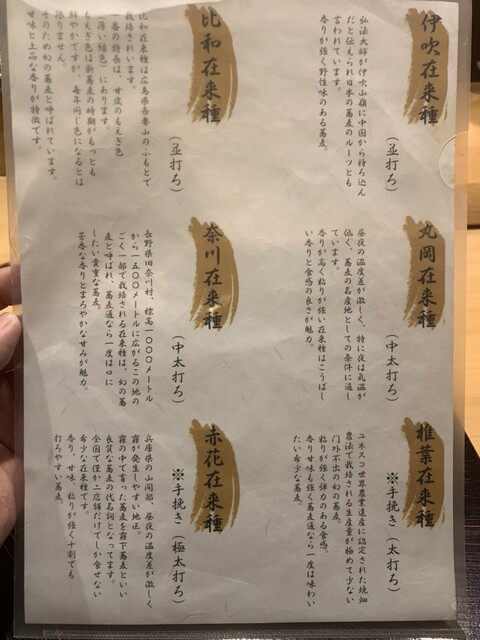 伊吹在来種
（並打ち）
弘法大師が伊吹山嶺に中国から持ち込ん
だと伝えられ日本の蕎麦のルーツとも
言われています。
香りが強く野性味のある蕎麦。
丸岡在来種
（中太打ち）
昼夜の温度差が激しく、特に夜は気温が
低く、蕎麦の名産地としての条件に適し
ています。
香りが高く粘りが強い在来種はこうばし
い香りと食感の良さが魅力。
椎葉在来種
※手挽き（太打ち）
ユネスコ世界農業遺産に認定された焼畑
農法で栽培される生産量が極めて少ない
門外不出の幻の蕎麦。
粘りが強く弾力のある食感。
香り甘味も強く蕎麦通なら一度は味わい
たい希少な蕎麦。
比和在来種
（並打ち）
比和在来種は広島県吾妻山のふもとで
栽培されています。
一番の特長は、甘皮のもえぎ色
（薄い緑色）にあります。
もえぎ色は新蕎麦の時期がもっとも
鮮やかですが、毎年同じ色になるとは
限りません。
そのため幻の蕎麦と呼ばれています。
甘味と上品な香りが特徴です。
奈川在来種
（中太打ち）
長野県旧奈川村、標高一〇〇〇メートル
から一五〇〇メートルに広がるこの地の
ごく一部で栽培される在来種は、幻の蕎
麦と呼ばれ、蕎麦通なら一度は口に
したい貴重な蕎麦。
芳香な香りとまろやかな甘みが魅力。
赤花在来種
※手挽き（極太打ち）
兵庫県の山間部、昼夜の温度差が激しく
霧が発生しやすい地区。
霧の中で育った蕎麦を霧下蕎麦といい
良質な蕎麦の代名詞となってます。
全国で僅か二店舗だけでしか食せない
希少な在来種です。
香り、甘味、粘りが強く十割でも
打ちやすい蕎麦。